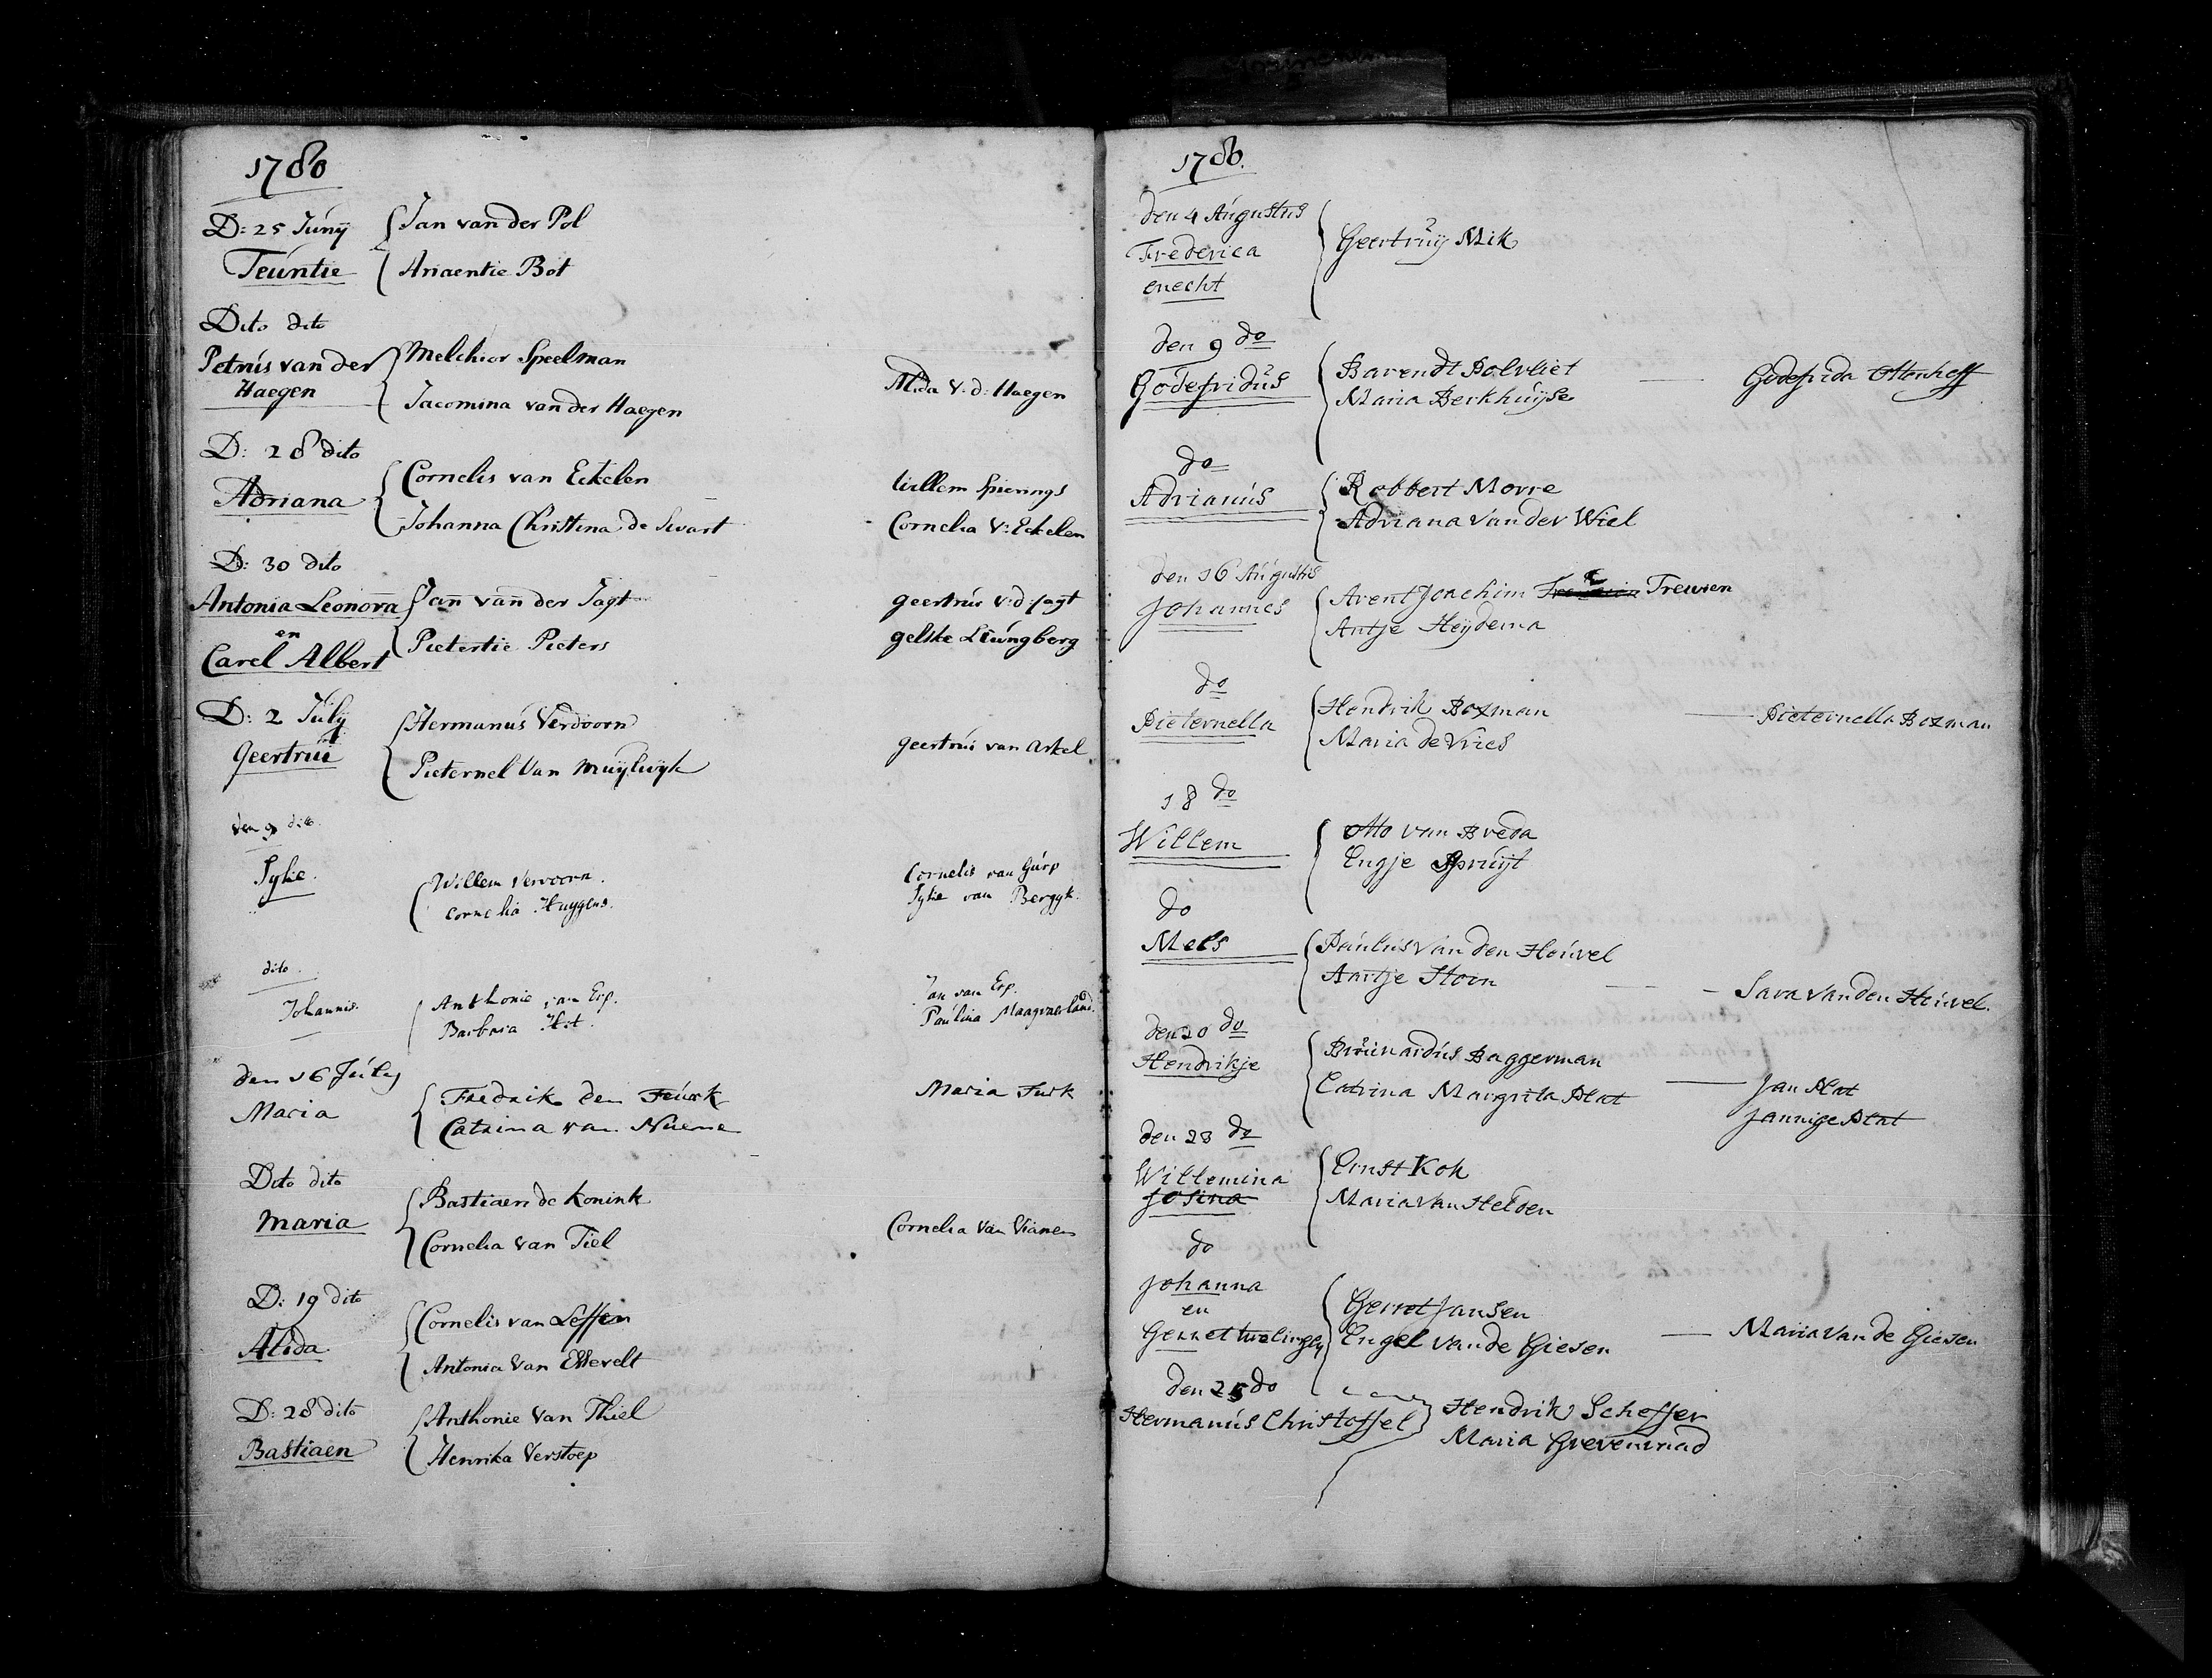 1780
D: 25 Júnÿ
Teúntie
Jan van der Pol
Ariaentie Bot
Dito dito
Petrús van der
Haegen
Melchior Speelman
Jacomina van der Haegen
Alida V: d: Haegen
D: 28 dito
Adriana
Cornelis van Eckelen
Johanna Christina de Swart
Willem Spierings
Cornelia V: Eckelen
D: 30 dito
Antonia Leonora
en
Carel Albert
Jan van der Jagt
Pietertie Pieters
geertrúi v: d: Jagt
gelske Liúngberg
D: 2 Júlÿ
Geertrúi
Hermanús Verdoorn
Pieternel Van Muÿlwÿk
geertrúi van Arkel
den 9 dito
Sijke.
Willem Vervoorn.
Cornelia Huygens.
Cornelis van Gúrp
Sijke van Bergyk.
dito.
Johannis.
Anthonie van Erp.
Barbara Hit.
Jan van Erp.
Paúlina
den 16 Júlij
Maria
Fredrik den Feúrk
Catrina van Nuene
Maria Furk
Dito dito
Maria
Bastiaen de Konink
Cornelia van Tiel
Cornelia Van Vianen
D: 19 dito
Alida
Cornelis van Leffen
Antonia Van Essevelt
D: 28 dito
Bastiaen
Anthonie Van Thiel
Henrika Verstoep
1780.
den 4 Aúgústús
Frederica
enecht
Geertrúÿ Mik
den 9 do
Godefridús
Barendt Bolvliet
Maria Berkhúÿse
Godefrida Ottenhoff
do
Adrianús
Robbert Morre
Adriana van der Wiel
den 16 Aúgústús
Johannes
Arent Joachim Treuren
Antje Heÿdema
do
Pieternella
Hendrik Boxman
Maria de Vries
Pieternella Boxman
18 do
Willem
Otto van Breda
Engje Sprúÿt
do
Mels
Paúlús van den Heúvel
Aartje Stoon
Sara van den Heúvel.
den 20 do
Hendrikje
Brúinardús Baggerman
Catrina Margrita Plat
Jan Plat
Jannigje Plat
den 23 do
Willemina
Josina
Ernst Kok
Maria van Helden
do
Johanna
en
Gerret twelingen
Gerret Jansen
Engel van de Giesen
Maria van de Giesen
den 25 do
Hermanús Christoffel
Hendrik Scheffer
Maria Grevenraad